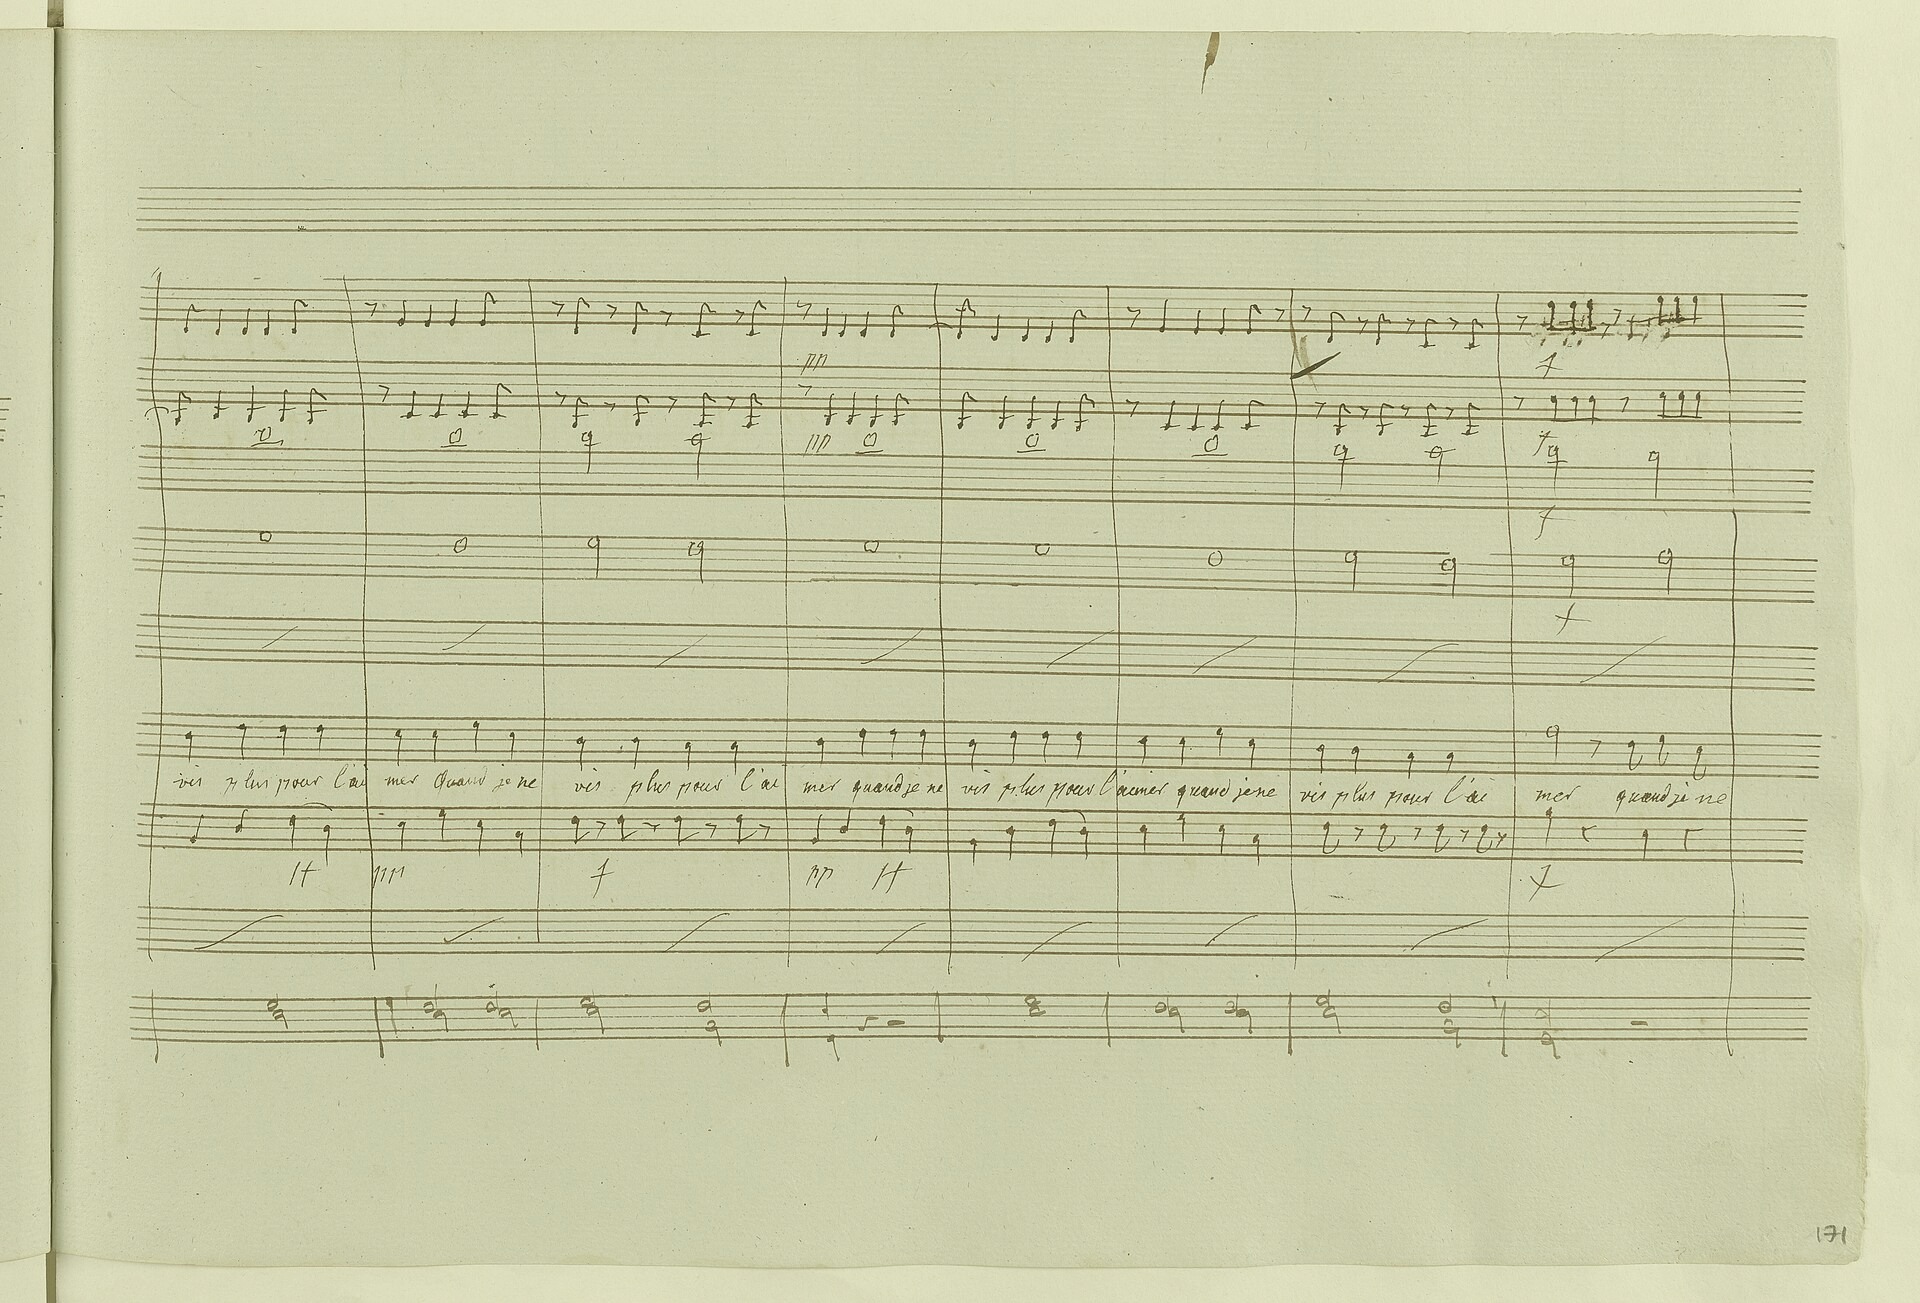 pp
f
pp
f
f
f
vis plus pour l'ai mer Quand je ne vis plus pour l'ai mer quand je ne vis plus pour l'aimer quand je ne vis plus pour l'ai mer quand je ne
pp f pp f
171